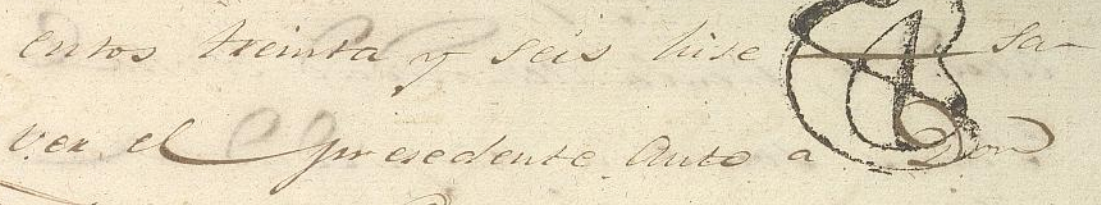 entos treinta y seis hise sa-
ver el presedente Auto a Don